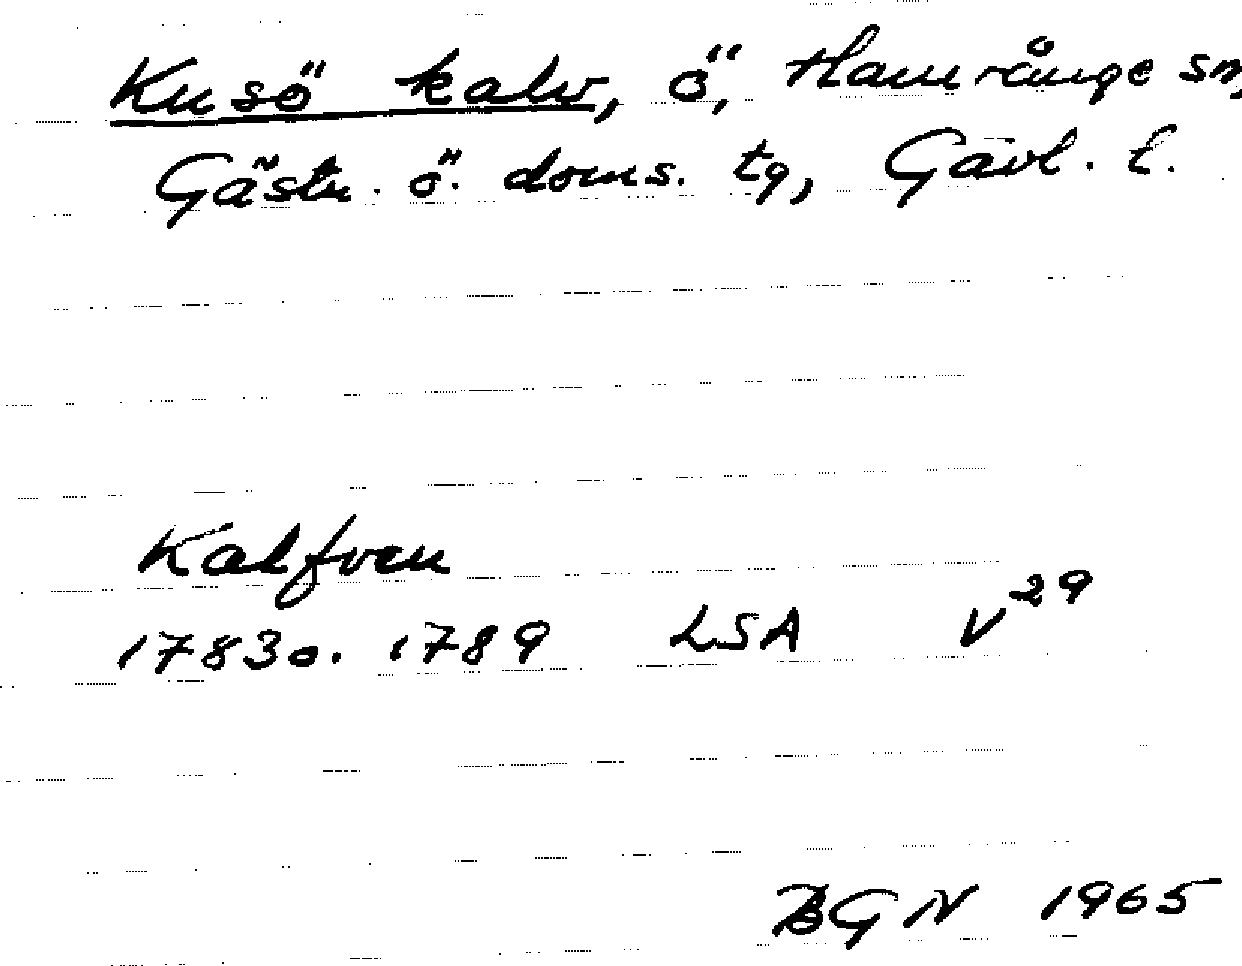 Kusö kalv, ö, Hamrånge sn,
Gästr. ö. doms. tg, Gävl. l.
Kalfven
1783 o. 1789 LSA V 29
BGN 1965